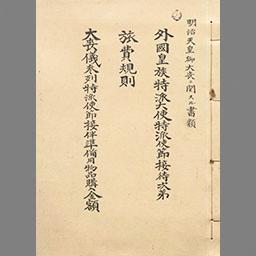 明治天皇御大喪ニ関スル書類
外國皇族特派大使特派使節接待次第
旅費規則
大喪儀参列特派使節接伴準備用物品購入金額